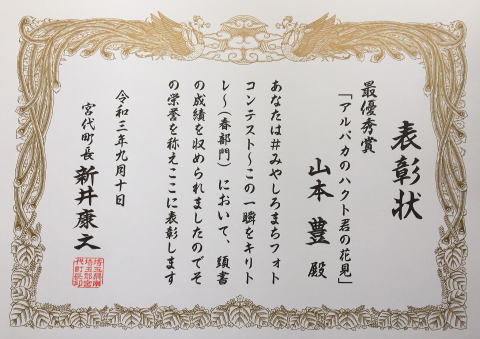 表彰状
最優秀賞
「アルパカのハクト君の花見」
山本 豊 殿
あなたは#みやしろまちフォト
コンテスト~この一瞬をキリト
レ~(春部門)において、頭書
の成績を収められましたのでそ
の栄誉を称えここに表彰します
令和三年九月十日
宮代町長 新井康之